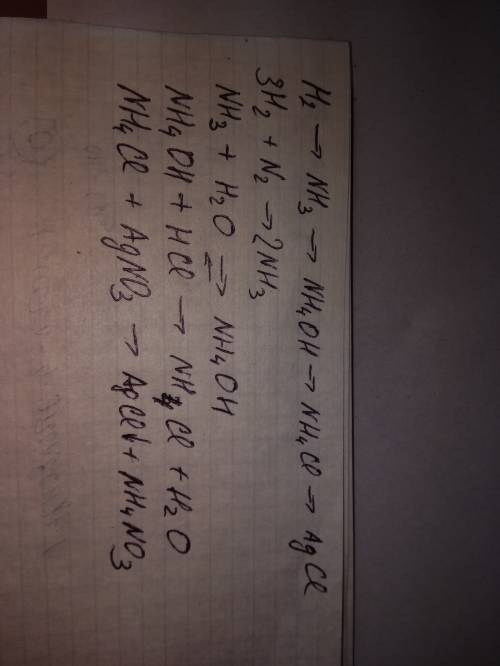 H₂ → NH₃ → NH₄OH → NH₄Cl → AgCl
3H₂ + N₂ → 2NH₃
NH₃ + H₂O ⇌ NH₄OH
NH₄OH + HCl → NH₄Cl + H₂O
NH₄Cl + AgNO₃ → AgCl↓ + NH₄NO₃